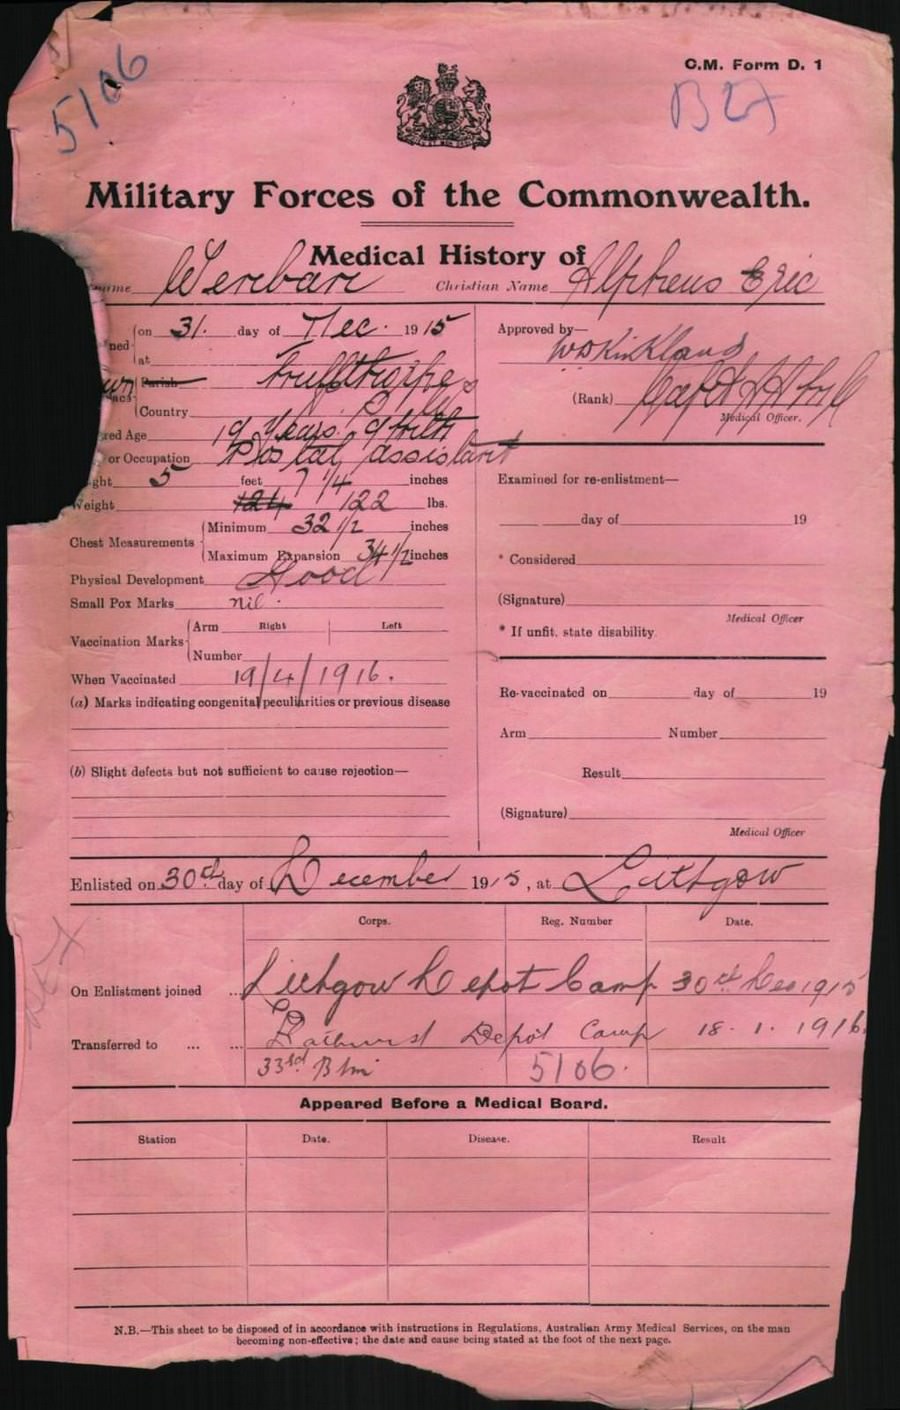 5106
C.M. Form D. 1
B27
Military Forces of the Commonwealth.
Medical History of
ame Christian Name Alpheus Eric
ned on 31. day of Dec. 1915
at
Parish
Country
red Age 19 years
or Occupation Postal assistant
ght 5 feet 7 1/4 inches
Weight 124 122 lbs.
Chest Measurements
Minimum 32 1/2 inches
Maximum Expansion 34 1/2 inches
Physical Development Good
Small Pox Marks nil.
Vaccination Marks
Arm Right Left
Number
When Vaccinated 19/4/1916.
(a) Marks indicating congenital peculiarities or previous disease
(b) Slight defects but not sufficient to cause rejection—
Approved by—
WD Kirkland
(Rank) Capt
Medical Officer.
Examined for re-enlistment—
day of 19
* Considered
(Signature)
Medical Officer
* If unfit, state disability.
Re-vaccinated on day of 19
Arm Number
Result
(Signature)
Medical Officer
Enlisted on 30th day of December 1915, at Lithgow
Corps. Reg. Number Date.
On Enlistment joined ... Lithgow Depot Camp 30th Dec 1915
Transferred to ... ... Bathurst Depot Camp 18. 1. 1916.
33rd Btn 5106.
Appeared Before a Medical Board.
Station Date. Disease. Result
N.B.—This sheet to be disposed of in accordance with instructions in Regulations, Australian Army Medical Services, on the man
becoming non-effective; the date and cause being stated at the foot of the next page.